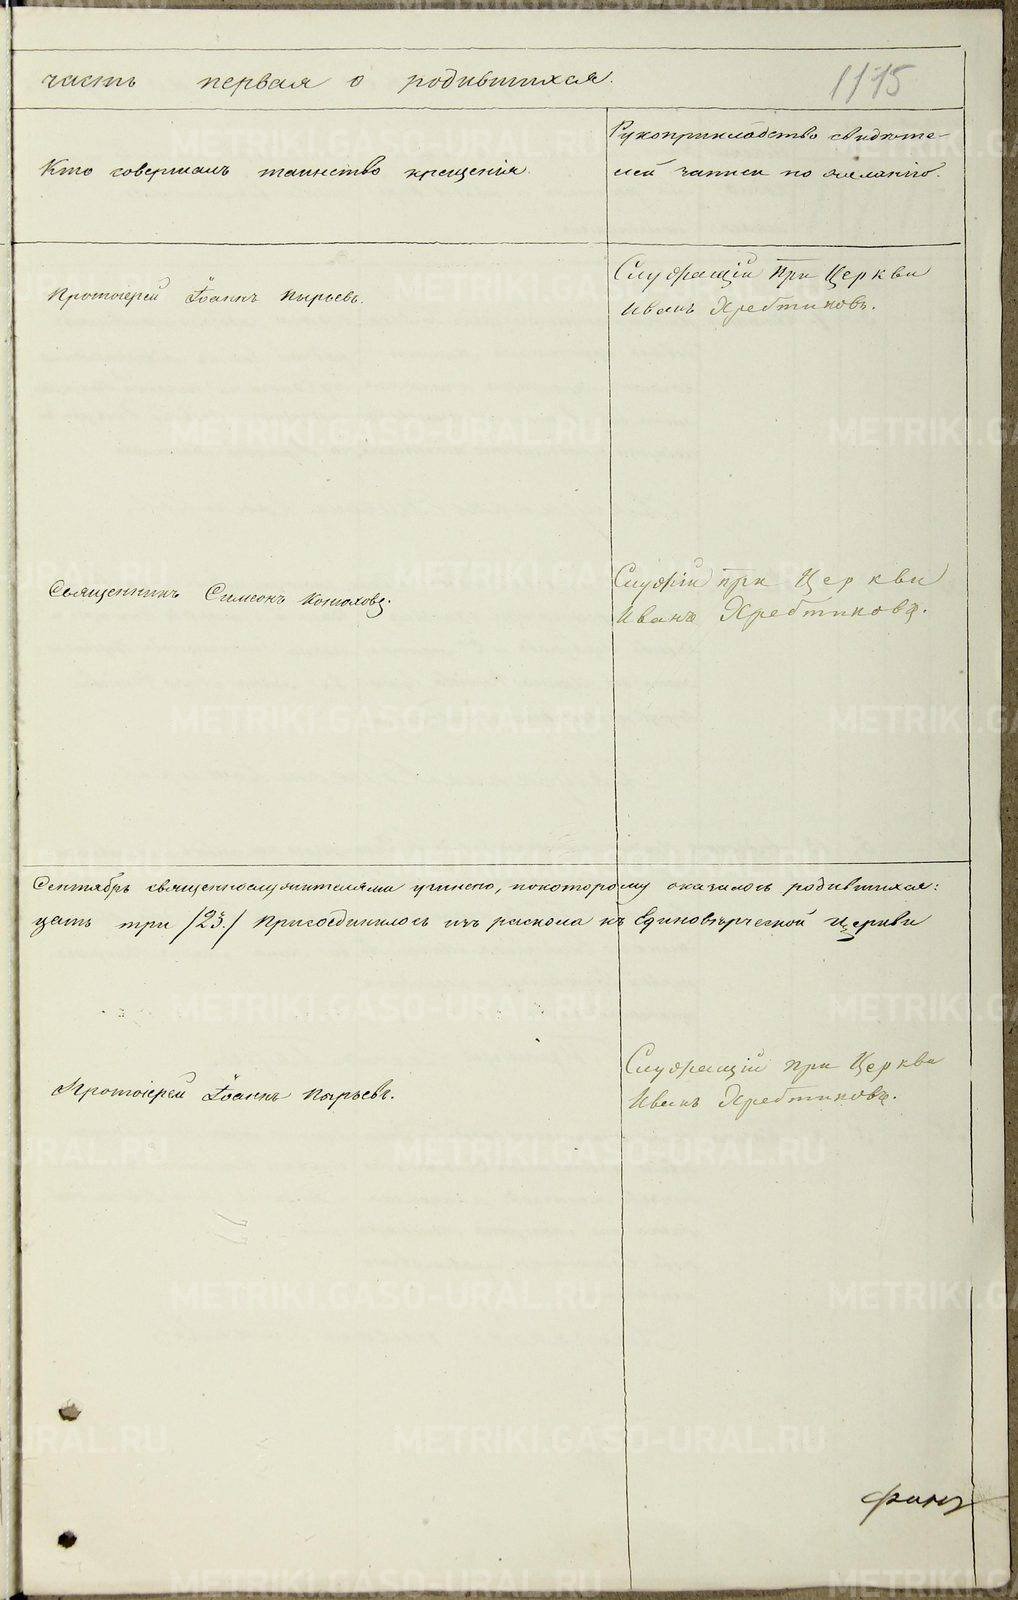 часть первая о родившихся.
1115
Кто совершалъ таинство крещенія.
Рукоприкладство свидѣте-
лей записи по желанію.
Протоіерей Іоаннъ Пырьевъ.
Служащій при Церкви
Иванъ Хребтиковъ.
Священникъ Симеонъ Конюховъ.
Служій при Церкви
Иванъ Хребтиковъ.
Сентябрь священнослужителями учинено, по которому оказалось родившихся:
цать три /23/ Присоединилось изъ раскола къ Единовѣрческой Церкви
Протоіерей Іоаннъ Пырьевъ.
Служащій при Церкви
Иванъ Хребтиковъ.
METRIKI.GASO-URAL.RU